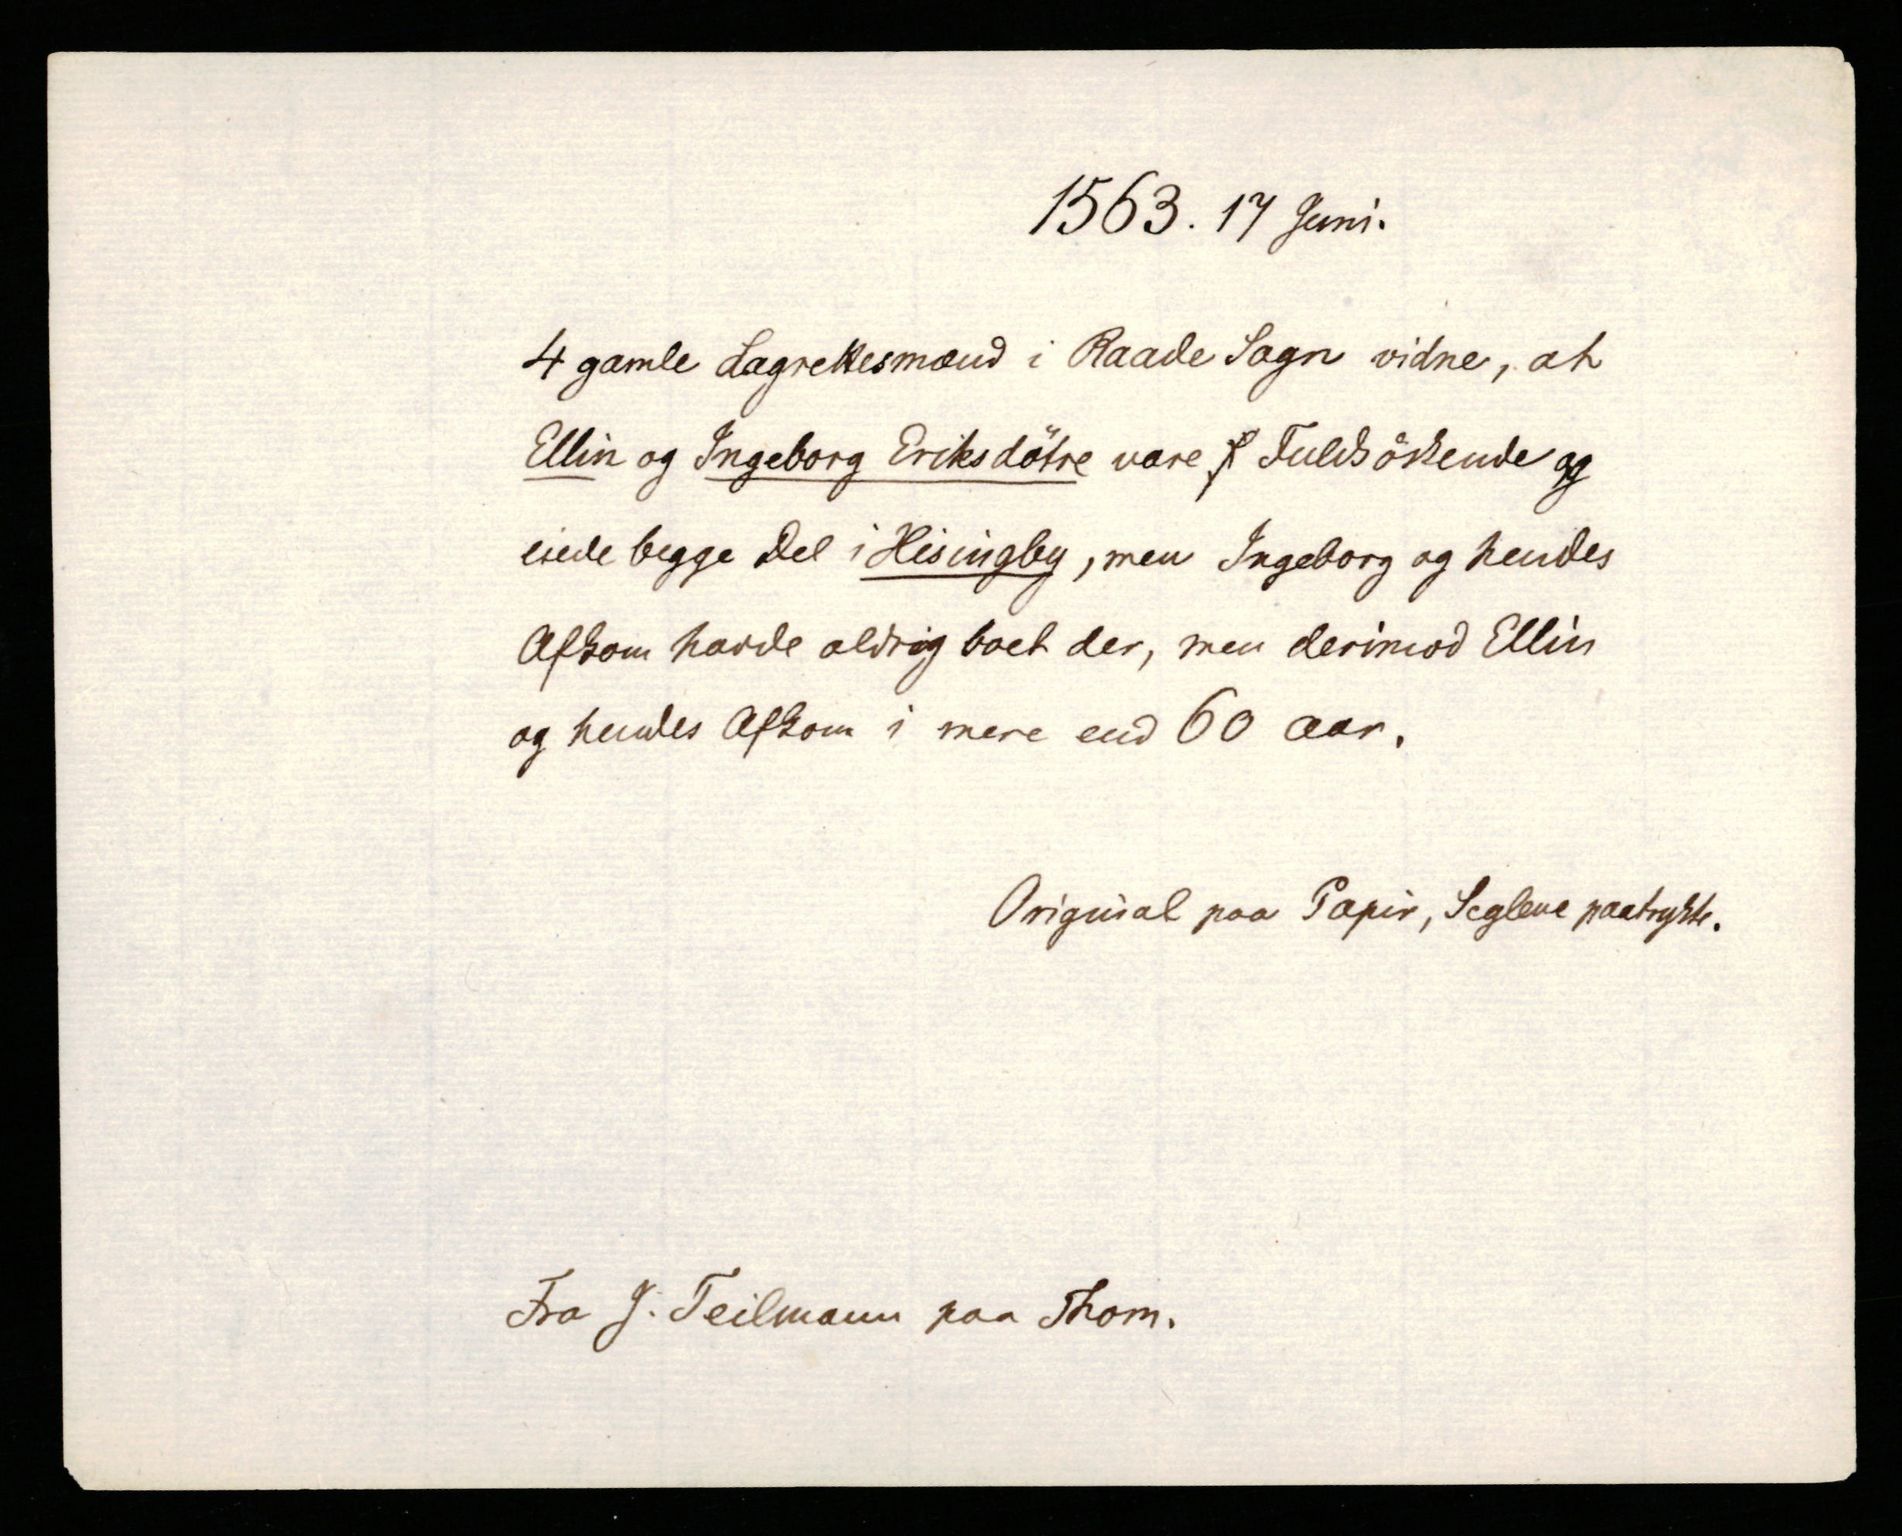 1563. 17 Juni.
4 gamle Lagrettesmænd i Raade Sogn vidne, at
Ellin og Ingeborg Eriksdötre vare Fuldsöskende og
eiede begge Del i Hisingby, men Ingeborg og hendes
Afkom havde aldrig boet der, men derimod Ellin
og hendes Afkom i mere end 60 Aar.
Original paa Papir, Seglene paatrykte.
Fra J. Teilmann paa Thom.